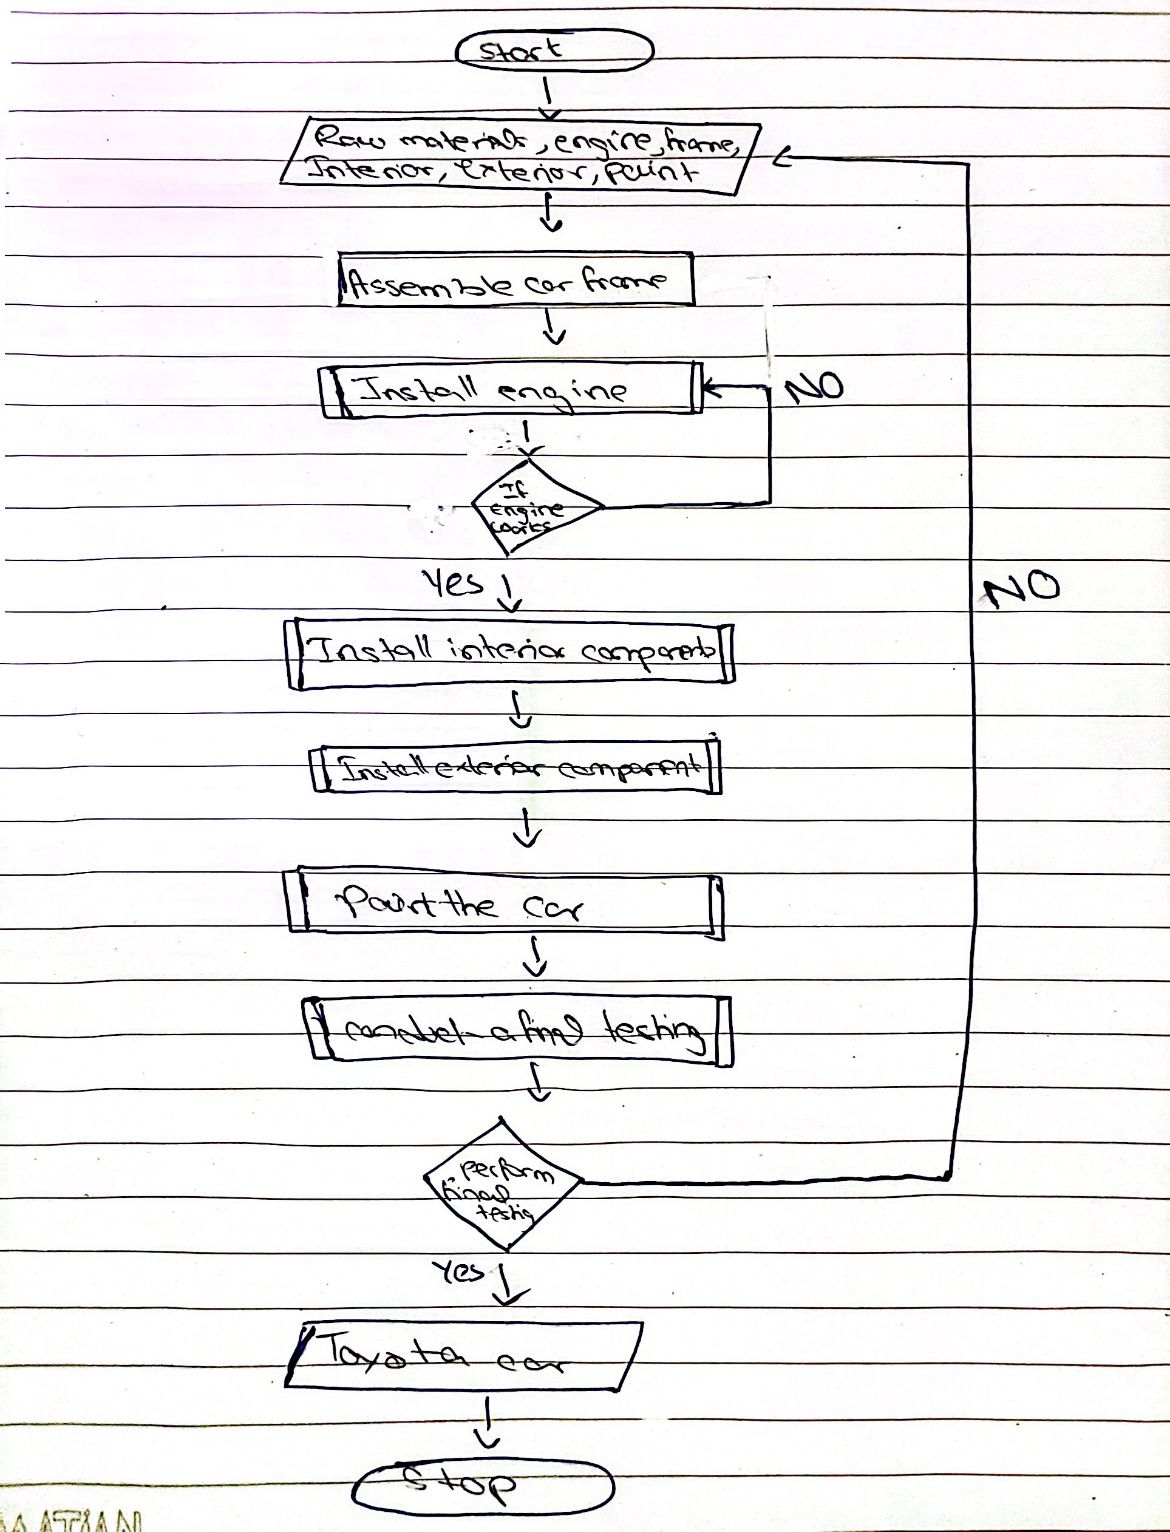 Start
Raw materials, engine, frame,
Interior, exterior, paint
Assemble car frame
Install engine
NO
If
engine
works
Yes
NO
Install interior components
Install exterior component
Paint the car
conduct a final testing
Perform
final
testig
Yes
Toyota car
Stop